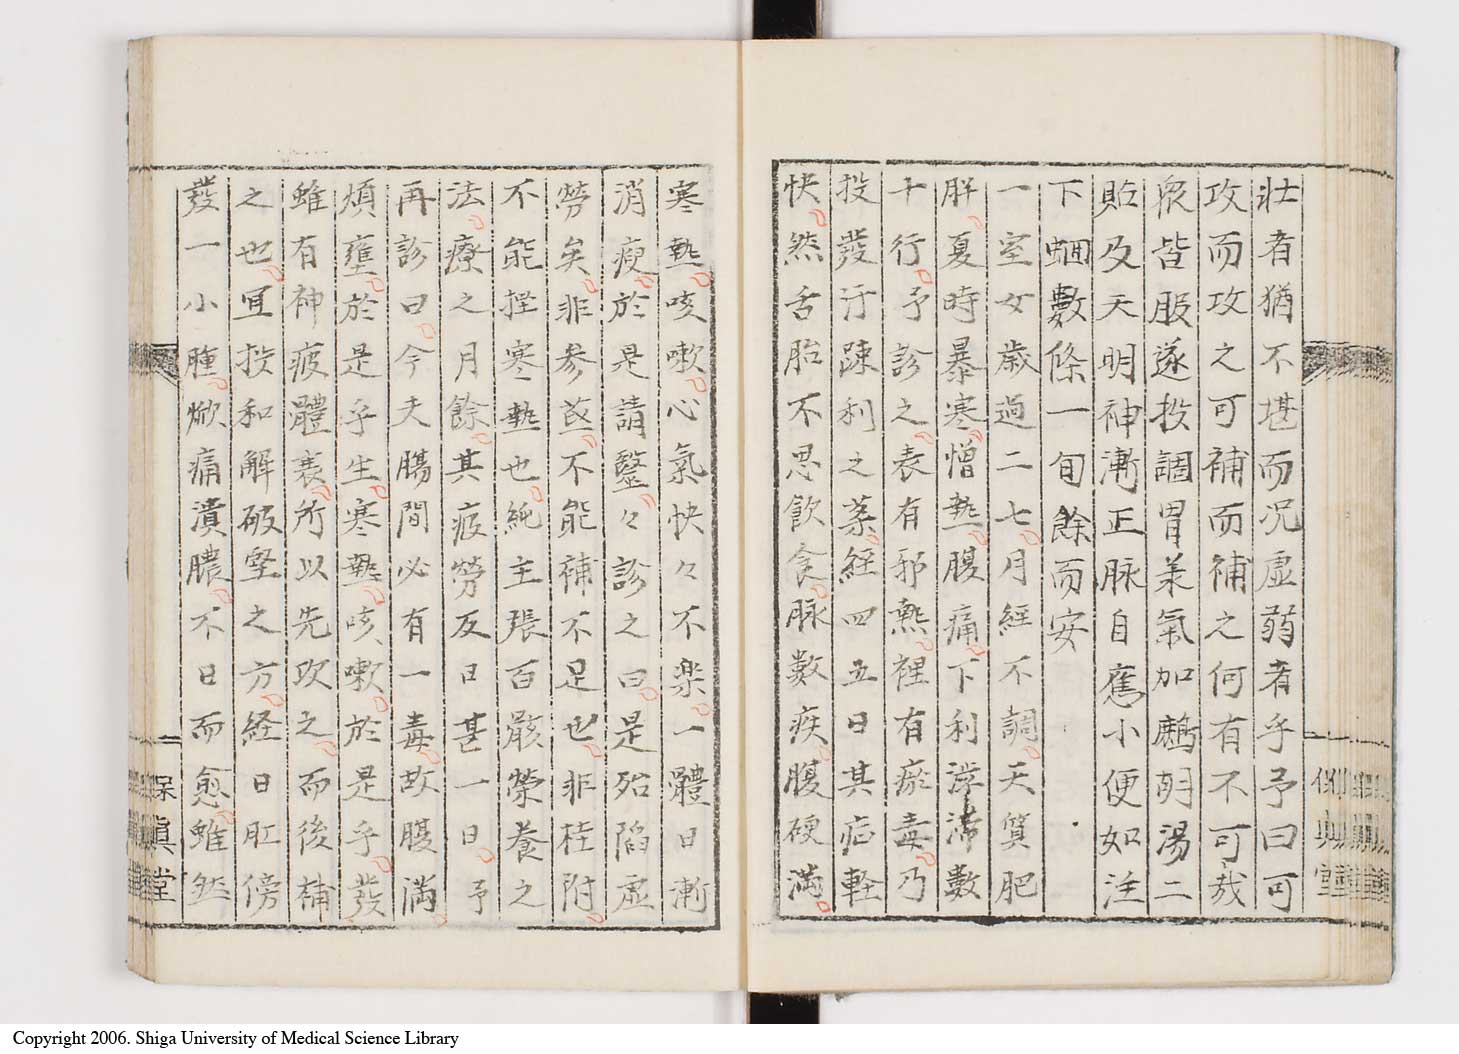 壮者猶不堪而况虚弱者乎予曰可
攻而攻之可補而補之何有不可哉
衆皆服遂投調胃羕氣加鷓胡湯二
貼及天明神漸正脉自舊小便如注
下蛔數條一旬餘而安
一室女歳過二七月經不調天質肥
胖夏時暴寒憎熱腹痛下利滞數
十行予診之表有邪熱裡有瘀毒乃
投發汗踈利之薬經四五日其症軽
快然舌胎不思飲食脉數疾腹硬満
寒熱咳嗽心氣快々不楽一體日漸
消瘦於是請醫々診之曰是殆陷虚
勞矣非參茋不能補不足也非桂附
不能挫寒熱也純主張百骸榮養之
法療之月餘其疲勞反日甚一日予
再診曰今夫腸間必有一毒故腹満
煩壅於是乎生寒熱咳嗽於是乎發
雖有神疲體衰所以先攻之而後補
之也宜投和解破堅之方経日肛傍
發一小腫焮痛潰膿不日而愈雖然
保眞堂
Copyright 2006. Shiga University of Medical Science Library